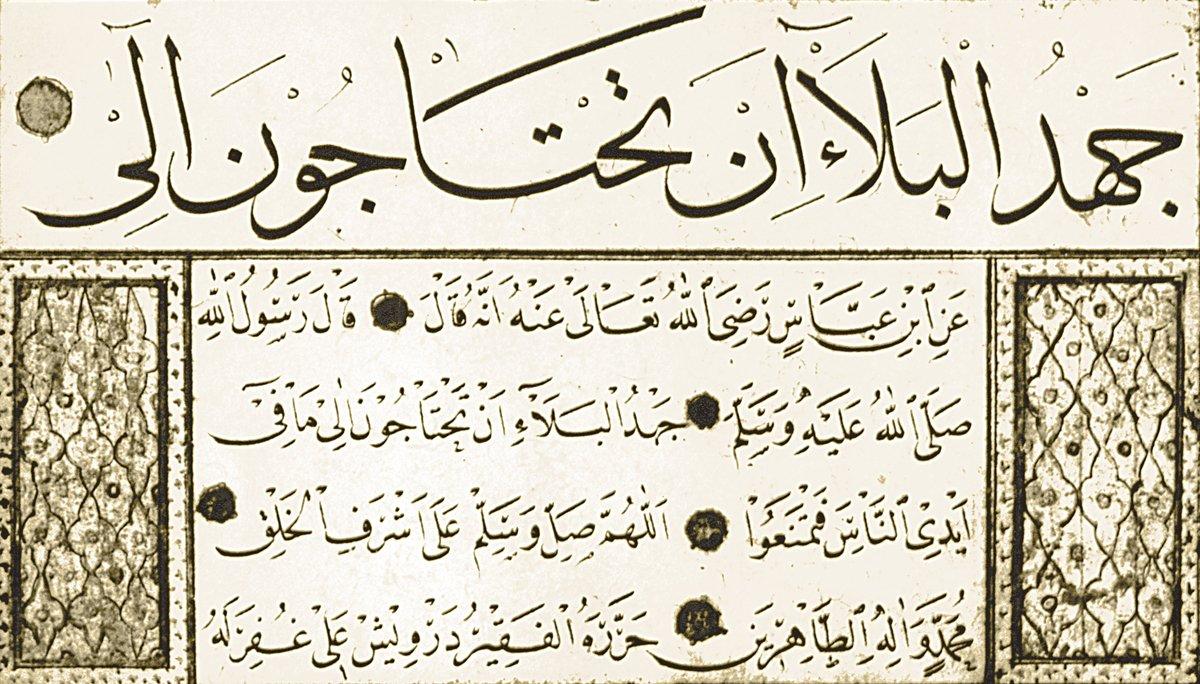 جَهْدُ الْبَلَآءِ اَنْ تَحْتَاجُونَ اِلٰى
عَنِ ابْنِ عَبَّاسٍ رَضِىَ اللّٰهُ تَعَالٰى عَنْهُ اَنَّهُ قَالَ قَالَ رَسُولُ اللّٰهِ
صَلَّى اللّٰهُ عَلَيْهِ وَسَلَّمَ جَهْدُ الْبَلَآءِ اَنْ تَحْتَاجُونَ اِلٰى مَا فِىٓ
اَيْدِى النَّاسِ فَتُمْنَعُوا اَللّٰهُمَّ صَلِّ وَسَلِّمْ عَلٰى اَشْرَفِ الْخَلْقِ
مُحَمَّدٍ وَاٰلِهِ الطَّاهِرِينَ حَرَّرَهُ الْفَقِيرُ دَرْوِيشْ عَلِى غُفِرَ لَهُ